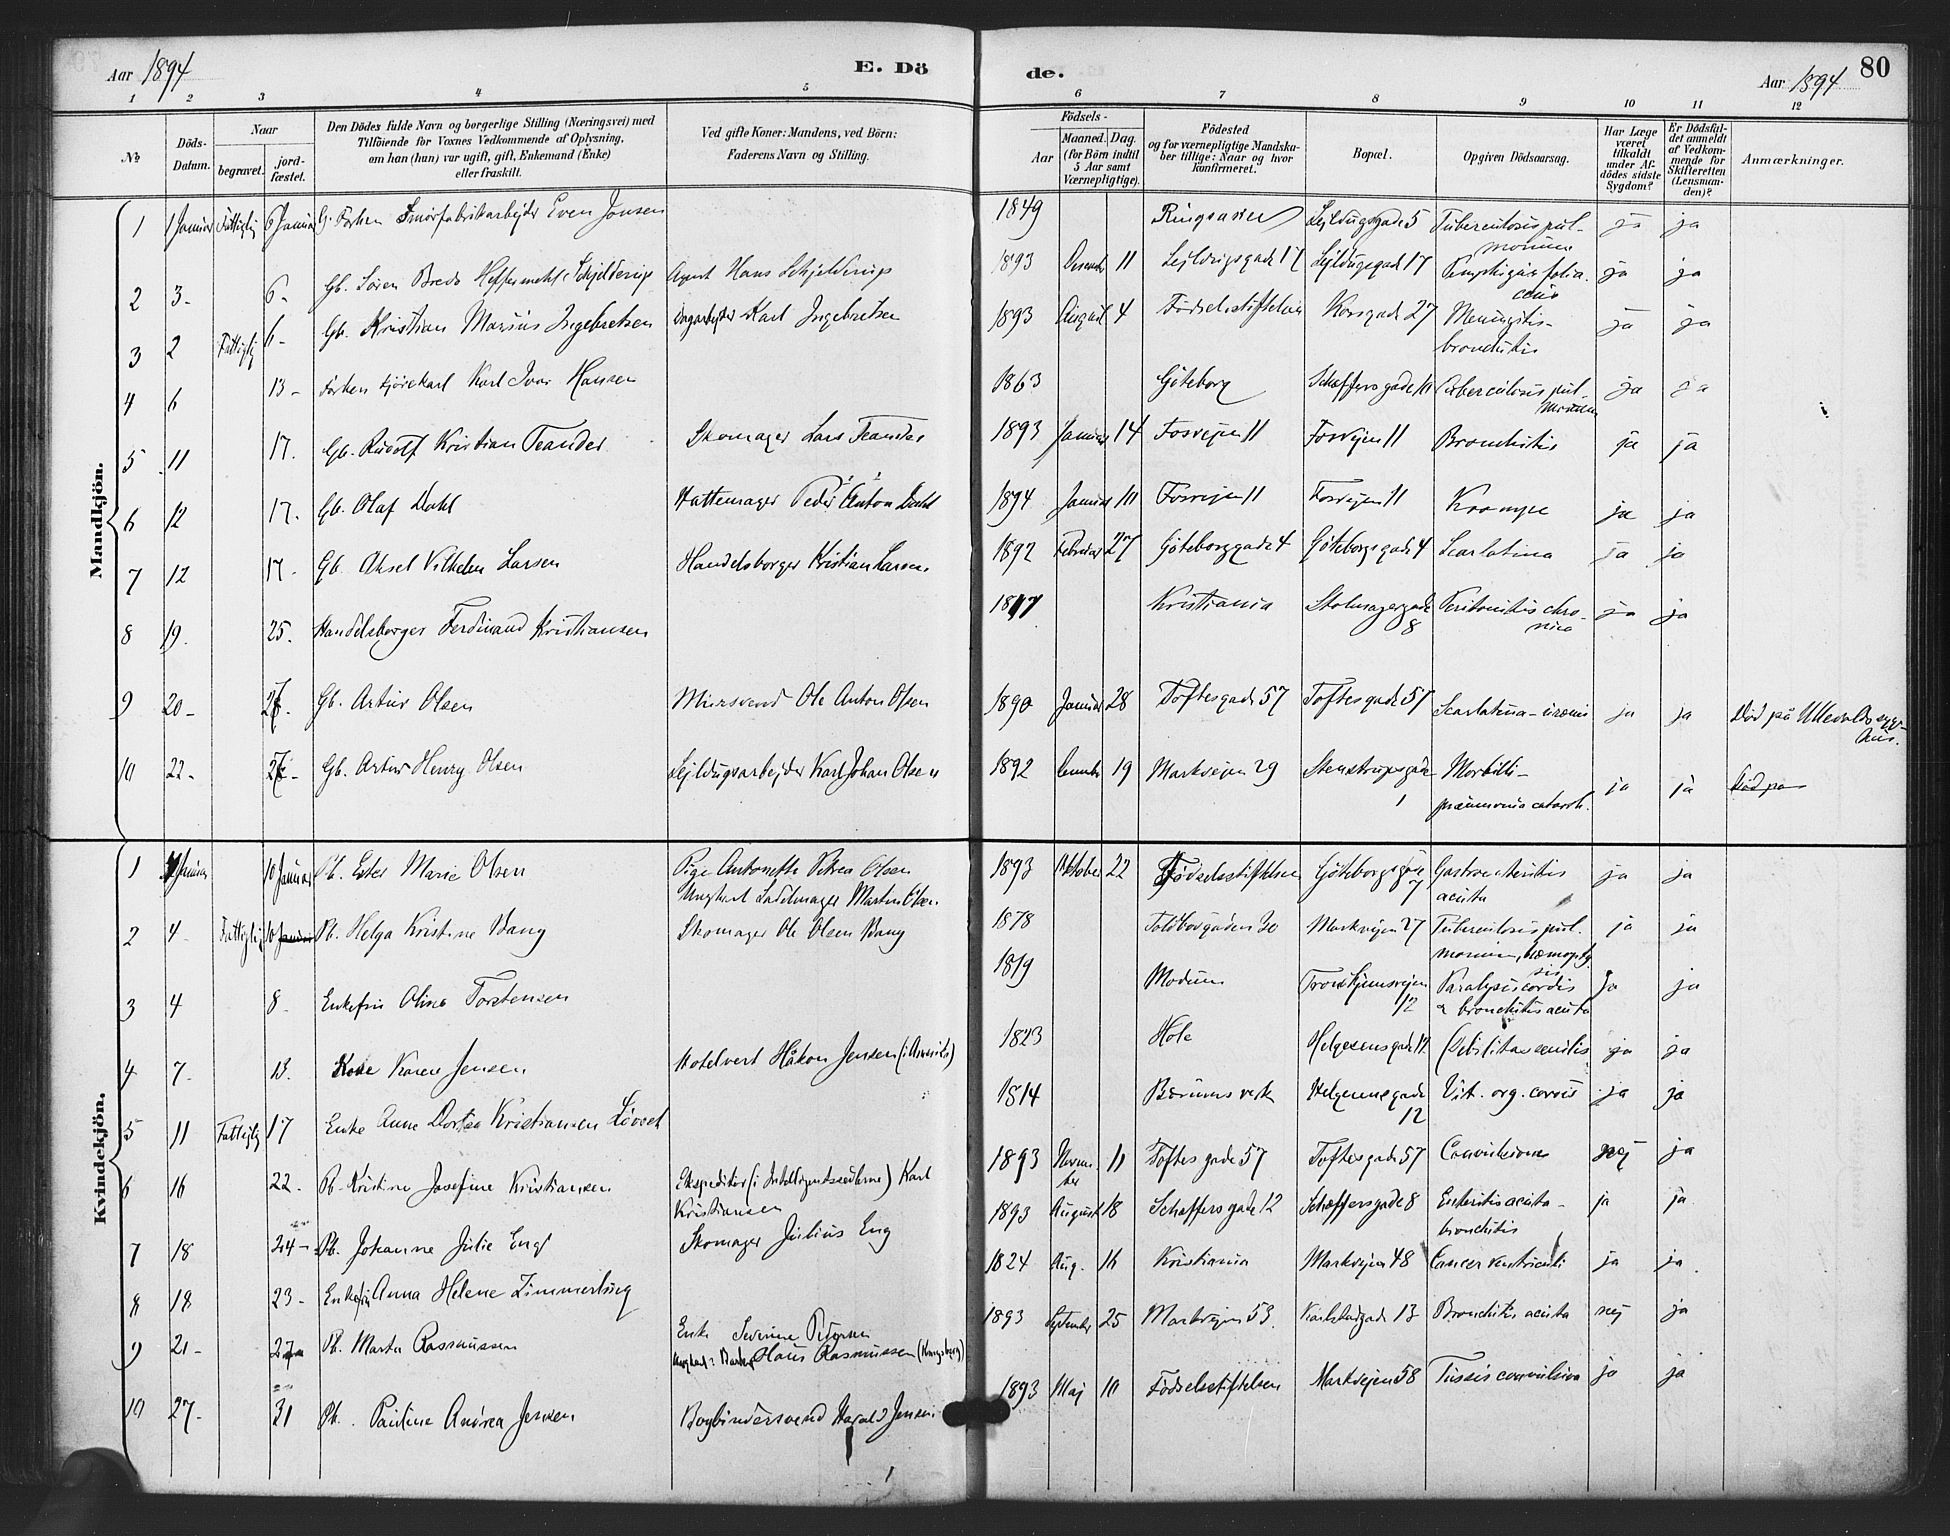 Aar 1894
E. Dö
de.
Aar 1894
80
1 2 3 4 5 6 7 8 9 10 11 12
№
Döds-
Datum.
Naar
begravet.
jord-
fæstet.
Den Dödes fulde Navn og borgerlige Stilling (Næringsvei) med
Tilföiende for Voxnes Vedkommende af Oplysning,
om han (hun) var ugift, gift, Enkemand (Enke)
eller fraskilt.
Ved gifte Koner: Mandens, ved Börn:
Faderens Navn og Stilling.
Födsels-
Aar
Maaned. Dag.
(for Börn indtil
5 Aar samt
Værnepligtige).
Födested
og for værnepligtige Mandska-
ber tillige: Naar og hvor
konfirmeret.
Bopæl.
Opgiven Dödsaarsag.
Har Læge
været
tilkaldt
under Af-
dödes sidste
Sygdom?
Er Dödsfal-
det anmeldt
af Vedkom-
mende for
Skifteretten
(Lensman-
den)?
Anmærkninger.
Mandkjön.
1 1 Januar Fattiglig 6 Januar Smörfabrikarbejder Even Jonsen 1849 Ringsaker Sejldugsgade 5 Tuberculosis pul-
monum ja ja
2 3- 6- Gb. Sören Bredo Schjelderup Agent Hans Schjelderup 1893 11 Sejldugsgade 17 Sejldugsgade 17 Pemphigus folia-
ceus ja ja
3 2 Fattiglig 6- Gb. Kristian Marius Ingebretsen Dagarbejder Karl Ingebretsen 1893 August 4 Födselsstiftelsen Korsgade 27 Meningitis-
bronchitis ja ja
4 6 13- Kjörekarl Karl Ivar Hansen 1863 Göteborg Schæffersgade 10 Tuberculosis pul-
monum ja ja
5 11 17. Gb. Rudolf Kristian Teander Skomager Lars Teander 1893 Januar 14 Fosvejen 11 Fosvejen 11 Bronchitis ja ja
6 12 17. Gb. Olaf Dahl Hattemager Peder Anton Dahl 1894 Januar 10 Fosvejen 11 Fosvejen 11 Krampe ja ja
7 12 17- Gb. Aksel Vilhelm Larsen Handelsborger Kristian Larsen 1892 Februar 27 Göteborggade 4 Göteborgsgade 4 Scarlatina ja ja
8 19. 25. Handelsborger Ferdinand Kristiansen 1817 Kristiania 8 Peritonitis chro-
nica ja ja
9 20- 27. Gb. Artur Olsen Mursvend Ole Anton Olsen 1890 Januar 28 Toftesgade 57 Toftesgade 57 Scarlatina-uræmi ja ja Död på Ullevolds syge-
hus.
10 22- 27- Gb. Artur Henry Olsen Sejldugsarbejder Karl Johan Olsen 1892 19 Markvejen 29 Stenstrupsgade
1 Morbilli-
pneumonia catarrh. ja ja Död på
Kvindekjön.
1 Januar 10 Januar Pb. Ester Marie Olsen Pige Antonette Petrea Olsen
Ungkarl Sadelmager Martin Olsen 1893 Oktober 22 Födselsstiftelsen Göteborgsgade
7 Gastroenteritis
acuta ja ja
2 4- Fattiglig 10 Januar Pb. Helga Kristine Bang Skomager Ole Olsen Bang 1878 Toldbodgaden 30 Markvejen 27 Tuberculosis pul-
monum, hæmopty-
sis ja ja
3 4 8- Enkefru Oline Torstensen 1819 Modum Trondhjemsvejen
12 Paralysis cordis
& bronchitis acuta ja ja
4 7- 13. Kone Karen Jensen Hotelvert Håkon Jensen (i Amerika) 1823 Hole Helgesensgade 12 Debilitas senilis ja ja
5 11 Fattiglig 17 Enke Anne Dortea Kristiansen Lövset 1814 Bærums verk Helgesensgade
12 Vit. org. cordis ja ja
6 16 22- Pb. Kristine Josefine Kristiansen Ekspeditör (i Intelligentssedlerne) Karl
Kristiansen 1893 Novem-
ber 11 Toftesgade 57 Toftesgade 57 Convulsiones nej ja
7 18 24- Pb. Johanne Julie Eng Skomager Julius Eng 1893 August 18 Schæffersgade 12 Schæffersgade 8 Enteritis acuta-
bronchitis ja ja
8 18 23- Enkefru Anna Helene Zimmerlung 1824 Aug. 16 Kristiania Markvejen 48 Cancer ventriculi ja ja
9 21- 27 Pb. Marta Rasmussen Enke Severine Pedersen
Ungkarl: Hans Rasmussen (Kongsberg) 1893 September 25 Markvejen 53. Karlstadgade 13 Bronchitis acuta nej ja
10 27- 31 Pb. Pauline Andrea Jensen Bogbindersvend Harald Jensen 1893 Maj 10 Födselsstiftelsen Markvejen 58 Tussis convulsiva ja ja